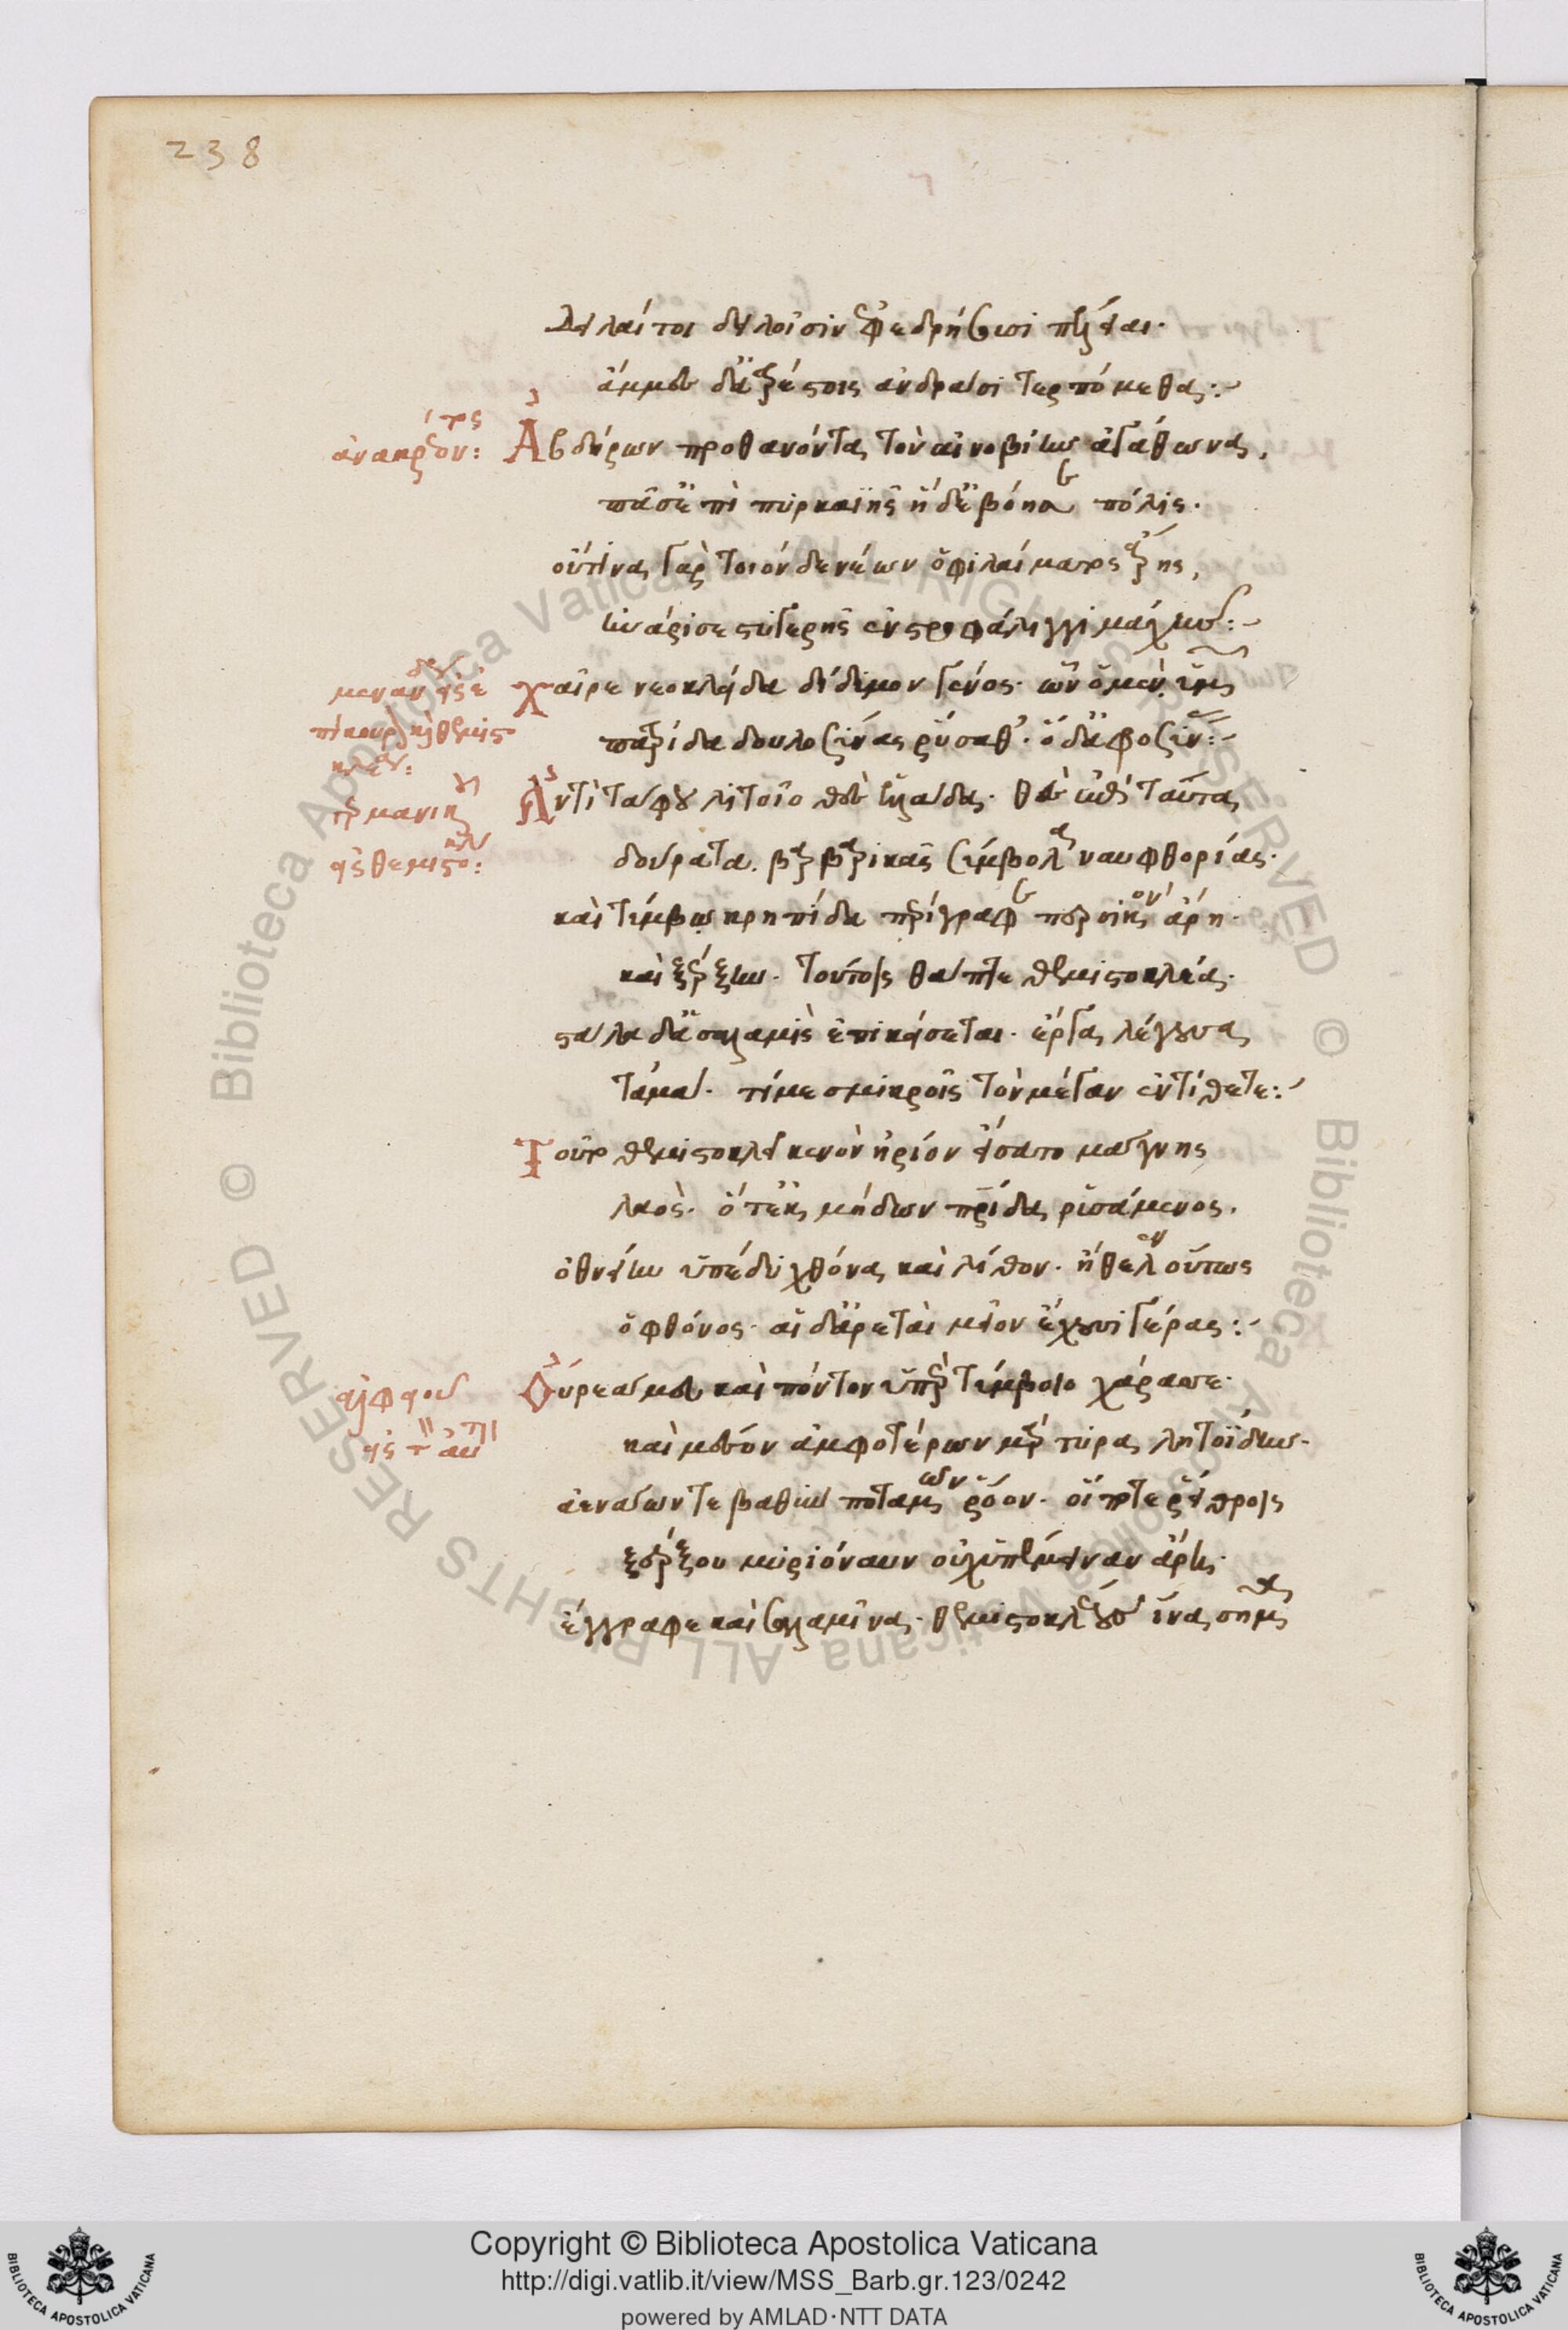 238
δειλαί τοι δειλοῖσιν ἐφεδρήσσωσι πολῖται·
ἄμμες δ' ἀτρέστοις ἀνδράσι τερπόμεθα:~
ἀνακρέοντος:
Ἀβδήρων προθανόντα τὸν αἰνοβίην ἀγάθωνα,
πᾶσ' ἐπὶ πυρκαϊῆς ἥδ' ἐβόησε πόλις·
οὔτινα γὰρ τοιόνδε νέων ὁ φιλαίματος ἄρης,
ἠνάρισε στυγερῆς ἐν στροφάλιγγι μάχης:~
μενάνδρου εἰς ἐ
πίκουρον καὶ θεμιστο
κλέα:
χαῖρε νεοκλείδα δίδυμον γένος· ὧν ὁ μὲν ὑμῶν
πατρίδα δουλοσύνας ῥύσαθ'· ὁ δ' ἀφροσύνας:~
γερμανικοῦ
εἰς θεμιστοκλέα:
Ἀντὶ τάφου λιτοῖο θὲς ἑλλάδα· θὲς δ' ἐπὶ ταύτα
δούρατα βαρβαρικᾶς σύμβολα ναυφθορίας·
καὶ τύμβω κρηπῖδα περίγραφε περσικὸν ἄρη·
καὶ ξέρξην· τούτοις θάπτε θεμιστοκλέα·
στάλα δ' ἁ σαλαμὶς ἐπικείσεται· ἔργα λέγουσα
τἀμά· τί με σμικροῖς τὸν μέγαν ἐντίθετε:~
Τοῦτο θεμιστοκλεῖ κενὸν ἠρίον εἵσατο μάγνης
λαὸς· ὅτ' ἐκ μήδων πατρίδα ῥυσάμενος·
ὀθνείην ὑπέδυ χθόνα καὶ λίθον· ἤθελεν οὕτως
ὁ φθόνος· αἱ δ' ἀρεταὶ μεῖον ἔχουσι γέρας:~
ἀλφειοῦ
εἰς τὸν αὐτόν
Οὔρεά μευ καὶ πόντον ὑπὲρ τύμβοιο χάρασσε·
καὶ μέσον ἀμφοτέρων μάρτυρα λητοΐδην·
ἀενάων τε βαθὺν ποταμῶν ῥόον· οἵ ποτε ῥείθροις
ξέρξου μυριόναυν οὐχ ὑπέμειναν ἄρην·
ἔγγραφε καὶ σαλαμῖνα· θεμιστοκλέους ἵνα σῆμα
Copyright © Biblioteca Apostolica Vaticana
http://digi.vatlib.it/view/MSS_Barb.gr.123/0242
powered by AMLAD·NTT DATA